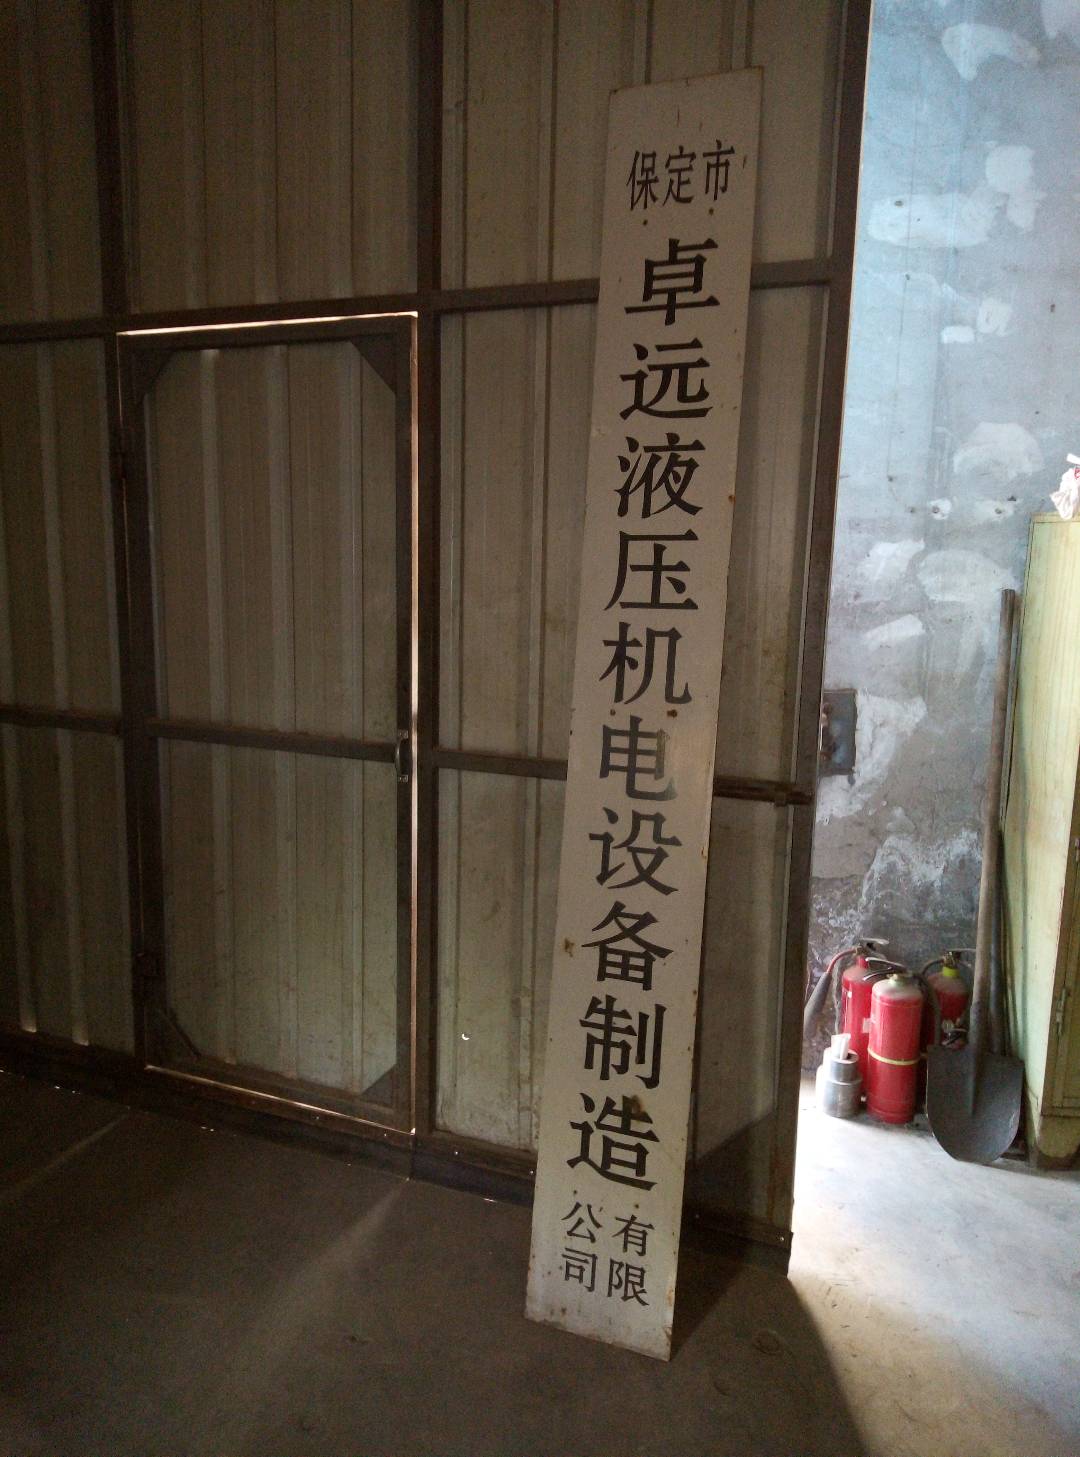 保定市
卓远液压机电设备制造
有限
公司